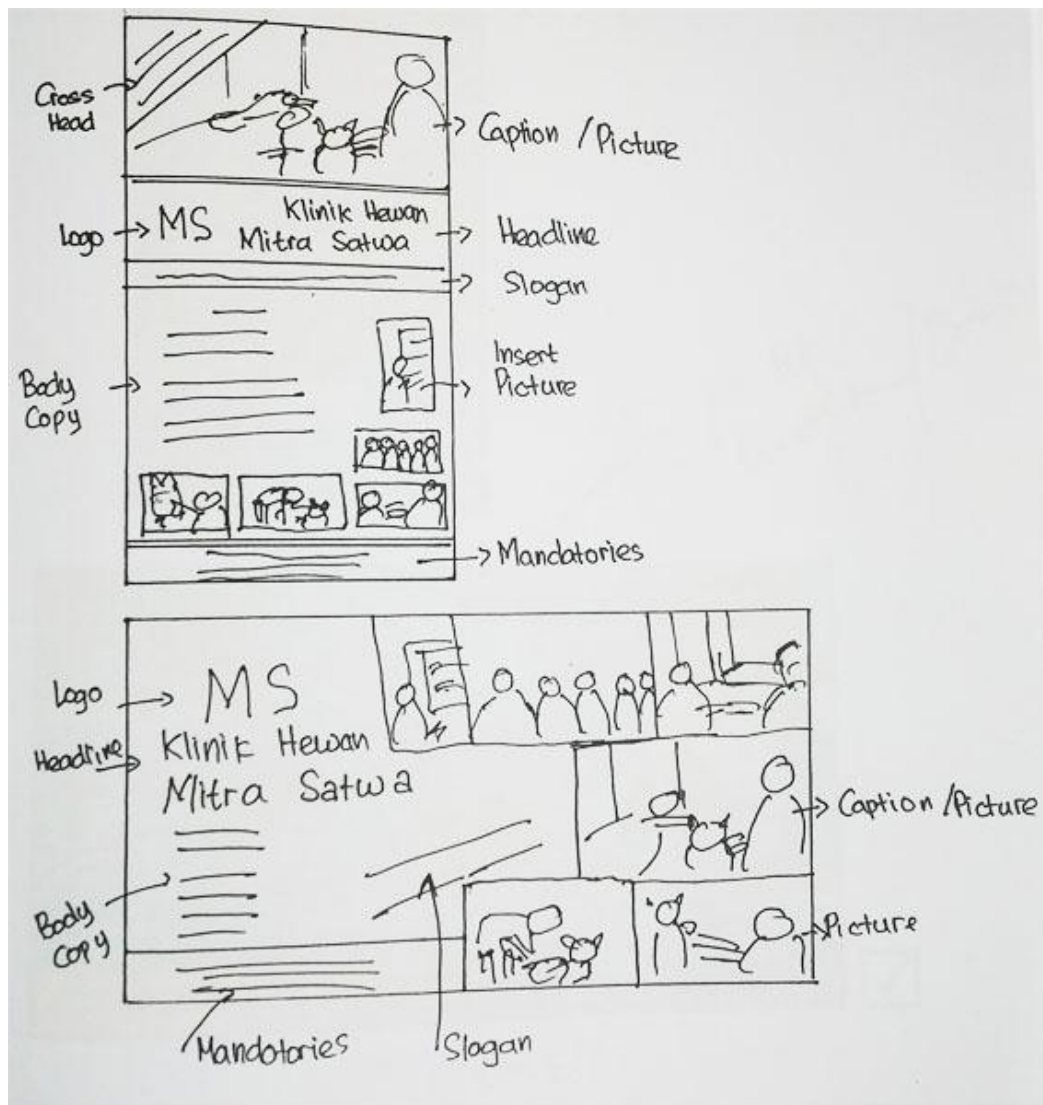 Cross
Head
Caption / Picture
Logo
MS
Klinik Hewan
Mitra Satwa
Headline
Slogan
Insert
Picture
Body
Copy
Mandatories
Logo
MS
Headline
Klinik Hewan
Mitra Satwa
Caption / Picture
Body
Copy
Picture
Mandatories
Slogan